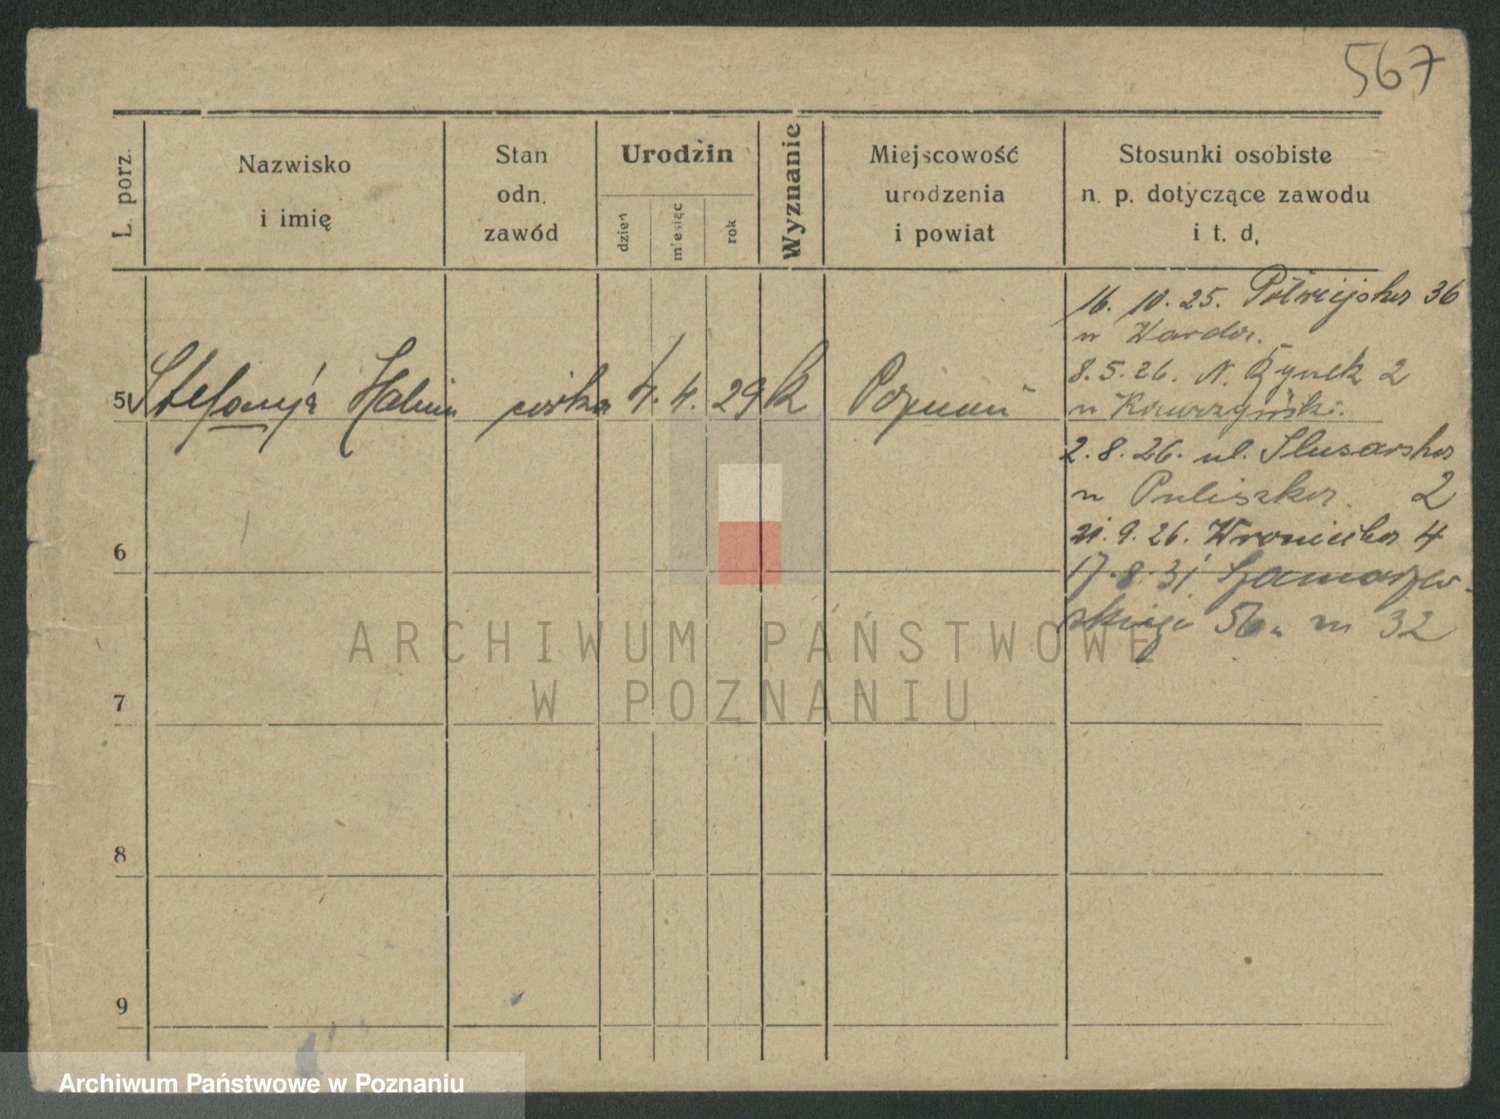 567
L. porz.
Nazwisko
i imię
Stan
odn.
zawód
Urodzin
dzień
miesiąc
rok
Wyznanie
Miejscowość
urodzenia
i powiat
Stosunki osobiste
n. p. dotyczące zawodu
i t. d,
5 Stefanja córka 4. 4. 29 k Poznań
16. 10. 25. Półwiejska 36
u
8.5.26. N. Rynek 2
u Kawczyński.
2.8.26. ul. Slusarska
u 2
21.9.26. Wroniecka 4
17.8.31 Szamarzew-
skiego 56a m 32
6
7
8
9
ARCHIWUM PAŃSTWOWE
W POZNANIU
Archiwum Państwowe w Poznaniu